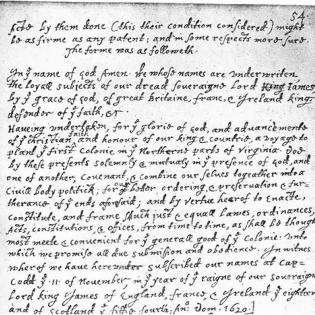 54
facte by them done (this their condition considered) might
be as firme as any patent; and in some respects more sure.
The forme was as followeth.
In yͤ name of god Amen. We whose names are underwriten,
the loyall subjects of our dread soveraigne Lord King James
by yͤ grace of god, of great Britaine, franc, & Ireland king,
defender of yͤ faith, &c
Haveing undertaken, for yͤ glorie of god, and advancemente
of yͤ christian faith and honour of our king & countrie, a voyage to
plant yͤ first colonie in yͤ Northerne parts of Virginia. Doe
by these presents solemnly & mutualy in yͤ presence of god, and
one of another, covenant, & combine our selves togeather into a
Civill body politick; for our better ordering, & preservation & fur-
therance of yͤ ends aforesaid; and by vertue hearof to Enacte,
constitute, and frame shuch just & equall Lawes, ordinances,
Acts, constitutions, & offices, from time to time, as shall be thought
most meete & convenient for yͤ generall good of yͤ Colonie: unto
which we promise all due submission and obedience. In witnes
wherof we have hereunder subscribed our names at Cap-
Codd yͤ ·11· of November, in yͤ year of yͤ raigne of our soveraigne
Lord king James of England, france, & Ireland yͤ eighteen
and of Scotland yͤ fiftie fourth. Anͦ: Dom. 1620.